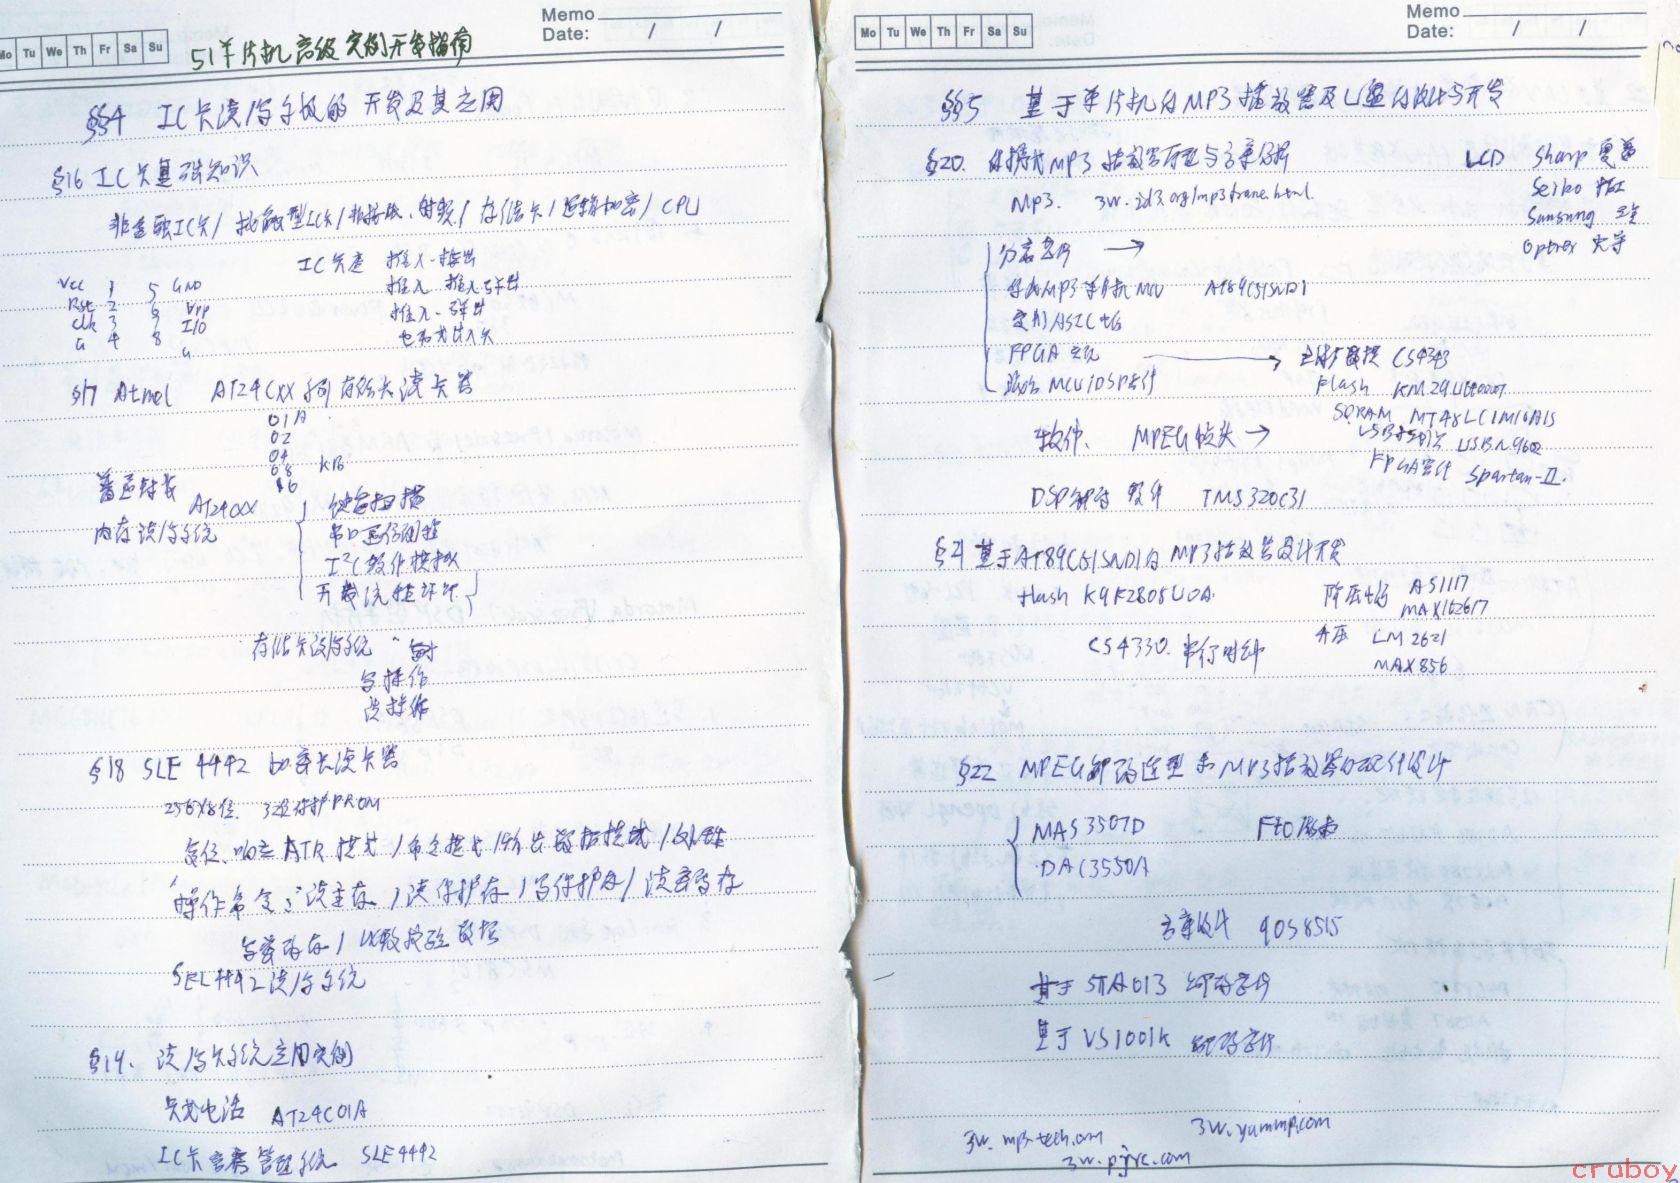 Mo Tu We Th Fr Sa Su
Memo
Date: / /
51单片机高级实例开发指南
§§4 IC卡读/写子极的开发及其应用
§16 IC卡基础知识
非金融IC卡/ 接触型IC卡/ 非接触、射频/ 存储卡/ 逻辑加密/ CPU
IC卡座 推入-拔出
推入 推入弹出
推入-弹出
Vcc 1 5 GND
Rst 2 6 Vpp
Clk 3 7 I/O
4 8
§17 Atmel AT24Cxx 系列存储卡读卡器
01A
02
04
08 KB
16
普通封装
AT24Cxx
内存读/写系统
键盘扫描
串口通信编程
I²C软件模拟
开发流程
存储卡读/写系统
写操作
读操作
§18 SLE 4442 加密卡读卡器
256X8位. 32位保护PROM
复位响应ATR 模式/命令模式/输出数据模式/处理
操作命令: 读主存/读保护存/写保护存/读密码存
写密码存/ 比较校验数据
SEL4442读/写系统
§19. 读/写系统应用实例
卡式电话 AT24C01A
IC卡 管理系统 SLE4442
Mo Tu We Th Fr Sa Su
Memo
Date: / /
§§5 基于单片机的MP3播放器及U盘的设计与开发
§20. 便携式MP3播放器原理与方案分析
LCD Sharp 夏普
Seiko 精工
Samsung 三星
Optrex
Mp3. 3w.id3.org/mp3frame.html
分离芯片 →
MP3单片机MCU AT89C51SND1
定制ASIC电路
FPGA 实现 → CS4343
MCU/DSP芯片
Flash KM29U64000T
SDRAM MT48LC1M16A1S
USB USBN9602
FPGA芯片 Spartan-II.
软件、 MPEG帧头 →
DSP解码 软件 TMS320C31
§21 基于AT89C51SND1的MP3播放器设计开发
flash K9F2808U0A
降压 AS1117
MAX1626/7
CS4330. 串行时钟
升压 LM2621
MAX856
§22 MPEG解码选型和MP3播放器的软件设计
MAS3507D
DAC3550A
方案设计 90S8515
基于STA013 解码芯片
基于VS1001k 解码芯片
3w.mp3-tech.com
3w.yummp.com
3w.pjrc.com
cruboy